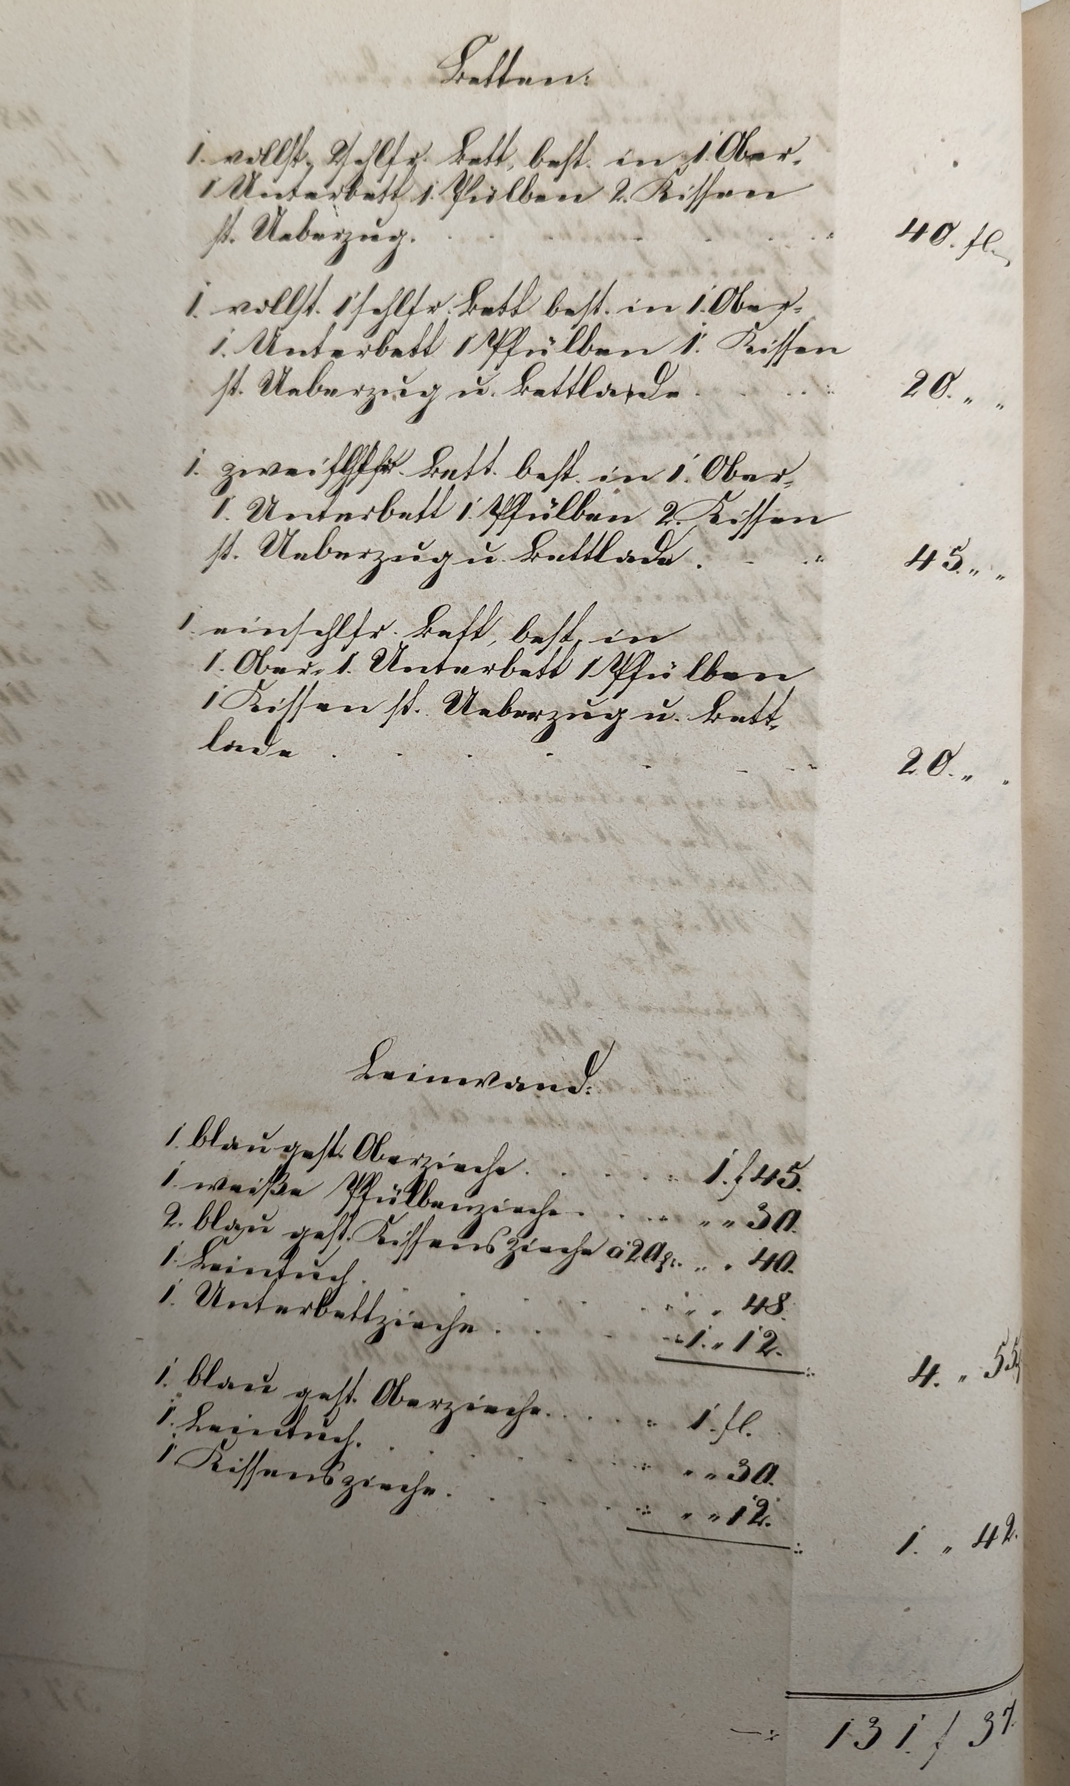 Betten:
1. vollst. 2schlfr. Bett, best. in 1. Ober-
1 Unterbett 1. Pfülben 2. Kissen
st. Ueberzug. 40. fl.
1. vollst. 1schlfr. Bett best. in 1. Ober-
1. Unterbett 1 Pfülben 1. Kissen
st. Ueberzug u. Bettlade 20. " "
1. zweischlfr. Bett. best. in 1. Ober-
1. Unterbett 1. Pfülben 2. Kissen
st. Ueberzug u. Bettlade. 45. " "
1. einschlfr. Bett, best. in
1. Ober- 1. Unterbett 1 Pfülben
1 Kissen st. Ueberzug u. Bett-
lade 20. " "
Leinwand:
1. blau gest. Oberzieche. 1. f 45.
1. weiße Pfülbenzieche. " " 30.
2. blau gest. Kissenszieche à 20 " " 40.
1. Leintuch. " " 48.
1. Unterbettzieche. 1. " 12.
4. " 55
1. blau gest. Oberzieche. 1. fl.
1. Leintuch. " " 30.
1 Kissenszieche. " " 12.
1. " 42.
131. f 37.